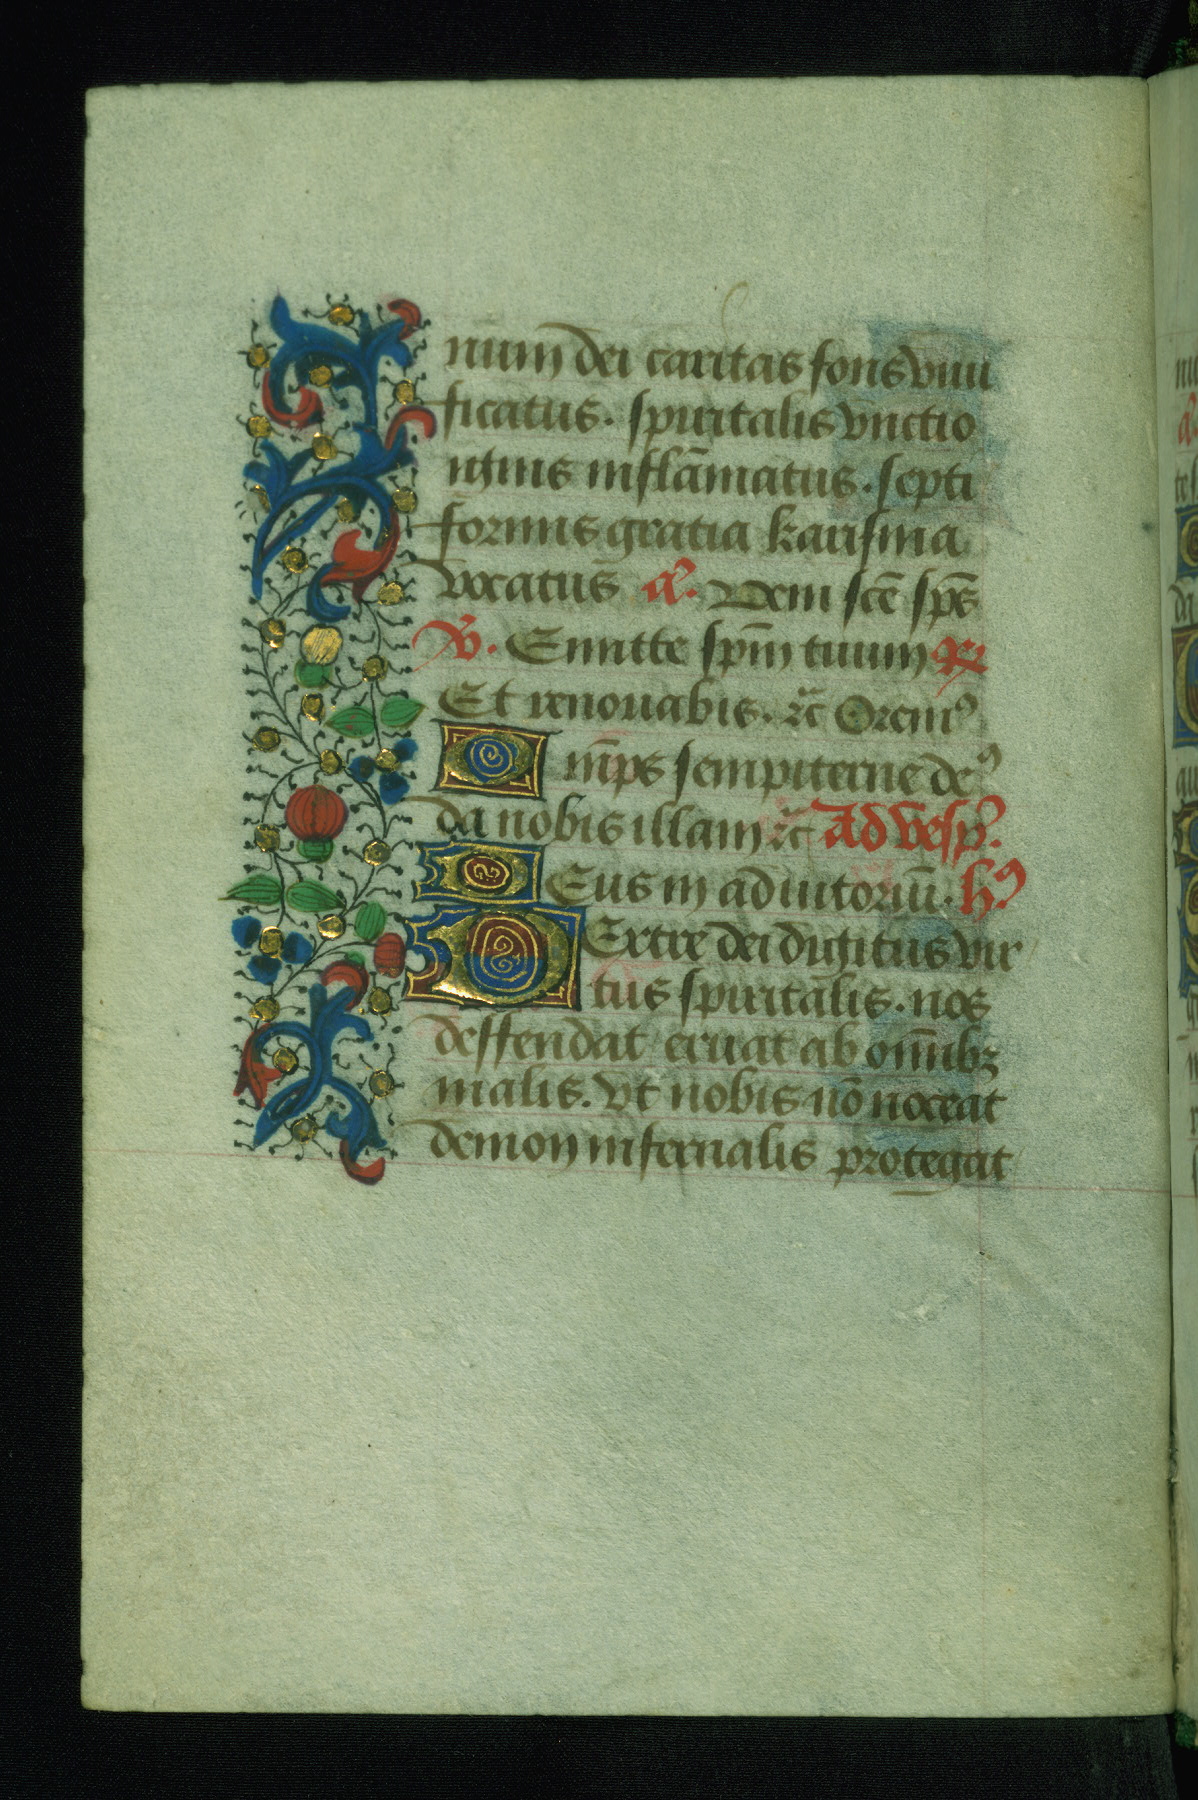 num dei caritas fons viui
ficatus. spiritalis vnctio
nijnis inflāmatus. septi
formis gratia karisma
vocatus a᷑. Veni scē sp̄s
V̄. Emitte sp̄m tuum ℟
Et renouabis. ⁊c̄ Oremꝰ
Om̄ps sempiterne deꝰ
da nobis illam ⁊c̄ Ad vesp̄.
Deus in adiutoriū. hꝰ
Dextre dei digitus vir
tus spiritalis. nos
deffendat eruat ab om̄ibꝫ
malis. vt nobis nō noceat
demon infernalis protegat